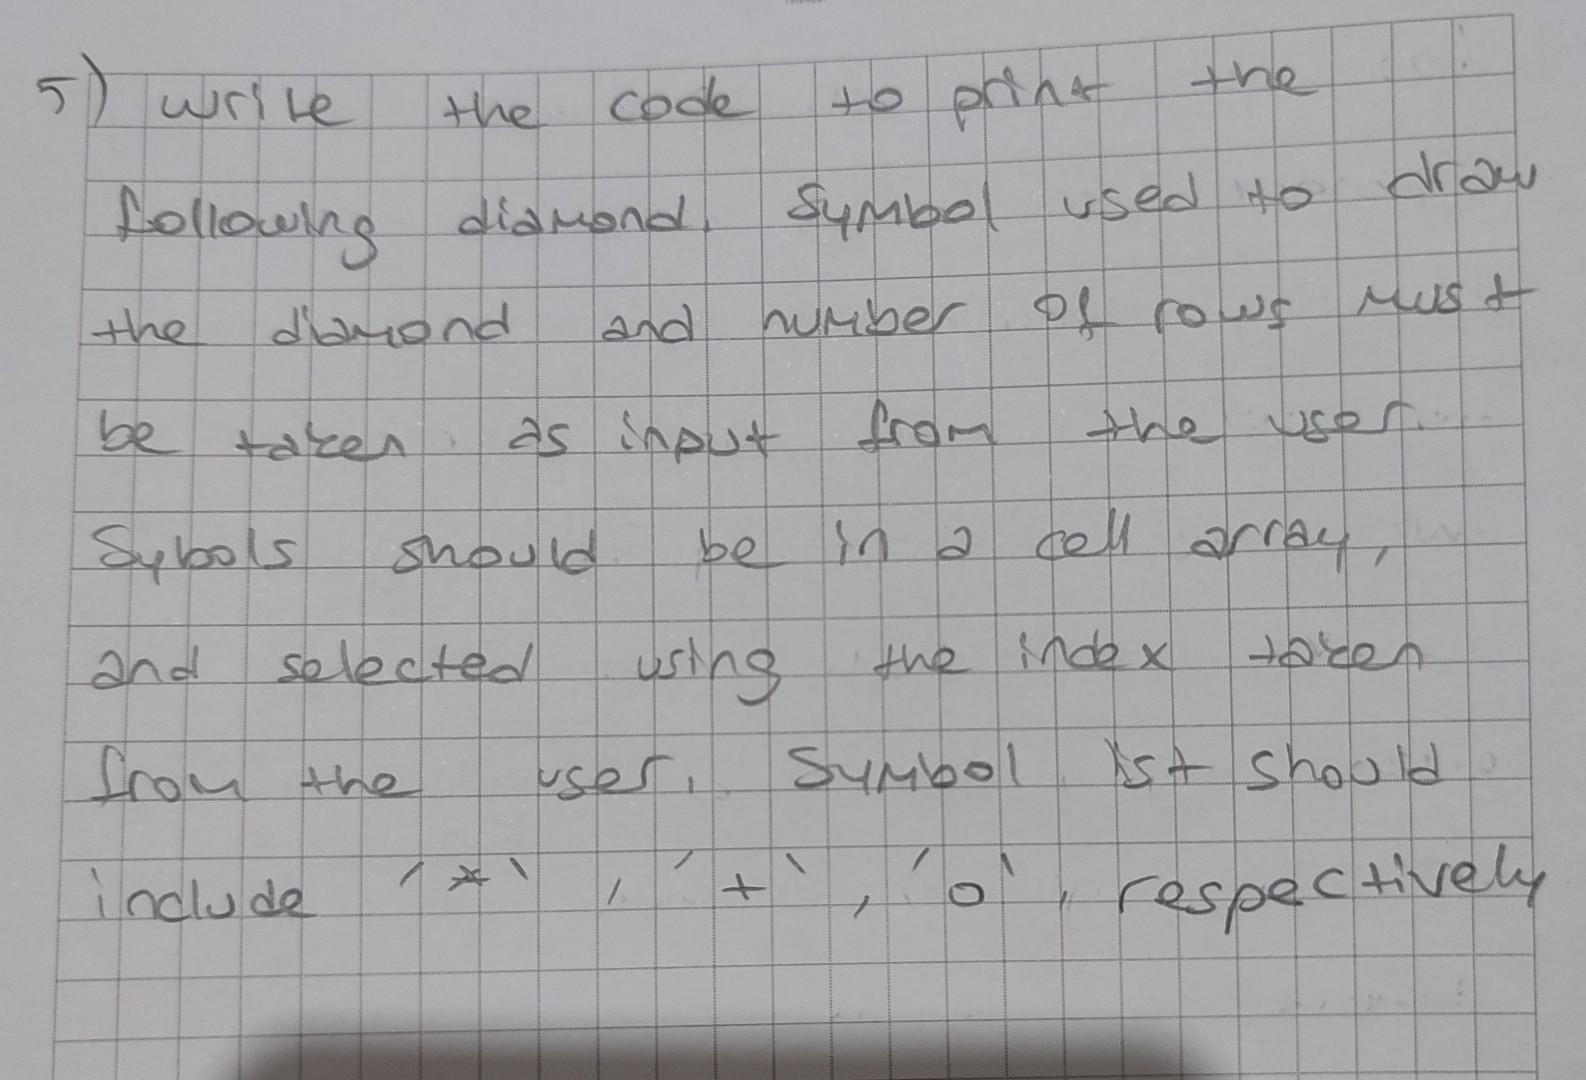 5) write the code to print the
following diamond. Symbol used to draw
the diamond and number of rows must
be taken as input from the user.
Sybols should be in a cell array,
and selected using the index taken
from the user. Symbol list should
include '*', '+', 'o', respectively